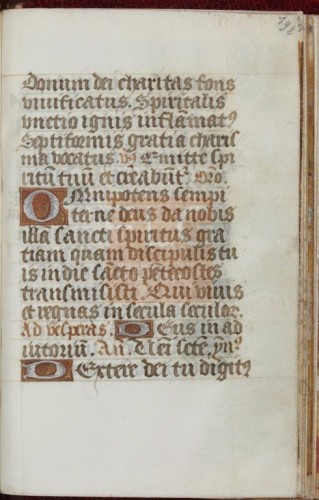 Donum dei charitas fons
viuificatus. Spiritalis
vnctio ignis inflāmatꝰ
Septiformis gratia charis
ma vocatus. vs̄ Emitte spi
ritū tuū et creabūtᷣ. Oro.
OMnipotens sempi
terne deus da nobis
illa sancti spiritus gra
tiam quam discipulis tu
is in die sācto pētecostes
transmisisti. Qui viuis
et regnas in secula seculoꝝ.
Ad vesperas. Deus in ad
iutoriū. An. Ueni scte. ynꝰ
Dextere dei tu digitꝰ